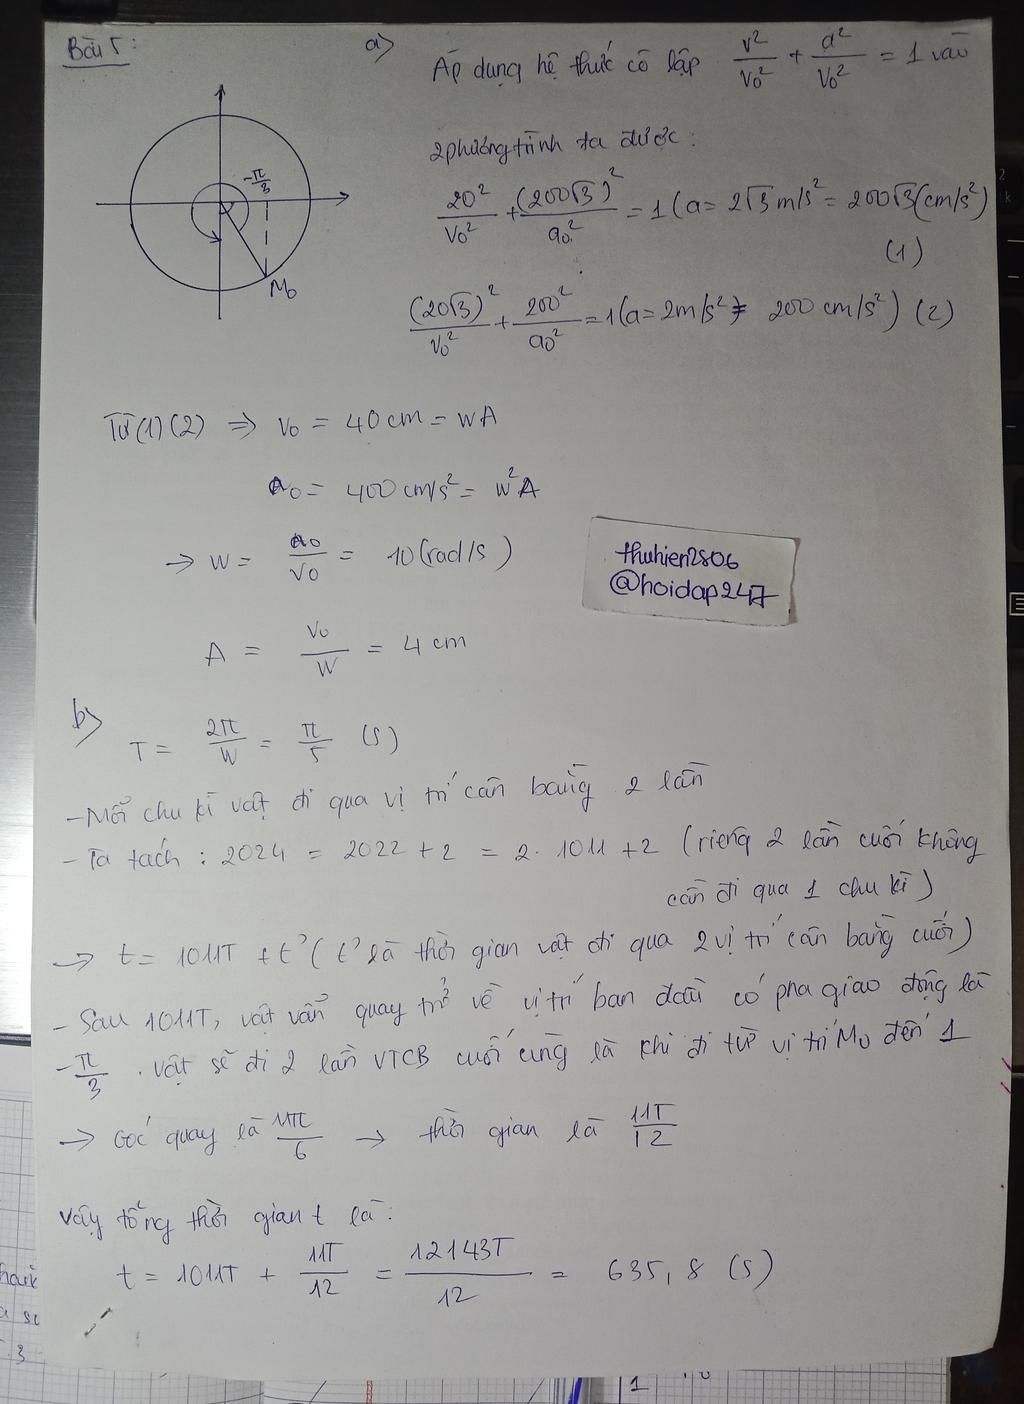 Bài 5:
a) Áp dụng hệ thức cô lập v²/v₀² + a²/v₀² = 1 vào
2 phương trình ta được:
20²/v₀² + (200√3)²/a₀² = 1 (a = 2√3 m/s² = 200√3 (cm/s²)
(1)
(20√3)²/v₀² + 200²/a₀² = 1 (a = 2m/s² = 200 cm/s²) (2)
-π/3
M₀
Từ (1) (2) => v₀ = 40 cm = wA
a₀ = 400 cm/s² = w²A
→ w = a₀/v₀ = 10 (rad/s)
thuhien2806
@hoidap247
A = v₀/w = 4 cm
b)
T = 2π/w = π/5 (s)
- Mỗi chu kì vật đi qua vị trí cân bằng 2 lần
- Ta tách : 2024 = 2022 + 2 = 2. 1011 + 2 (riêng 2 lần cuối không
cần đi qua 1 chu kì)
→ t = 1011T + t' (t' là thời gian vật đi qua 2 vị trí cân bằng cuối)
- Sau 1011T, vật vẫn quay trở về vị trí ban đầu có pha giao động là
-π/3 . Vật sẽ đi 2 lần VTCB cuối cùng là khi đi từ vị trí M₀ đến 1
→ Góc quay là 11π/6 → thời gian là 11T/12
Vậy tổng thời gian t là:
t = 1011T + 11T/12 = 12143T/12 = 635,8 (s)
3
1